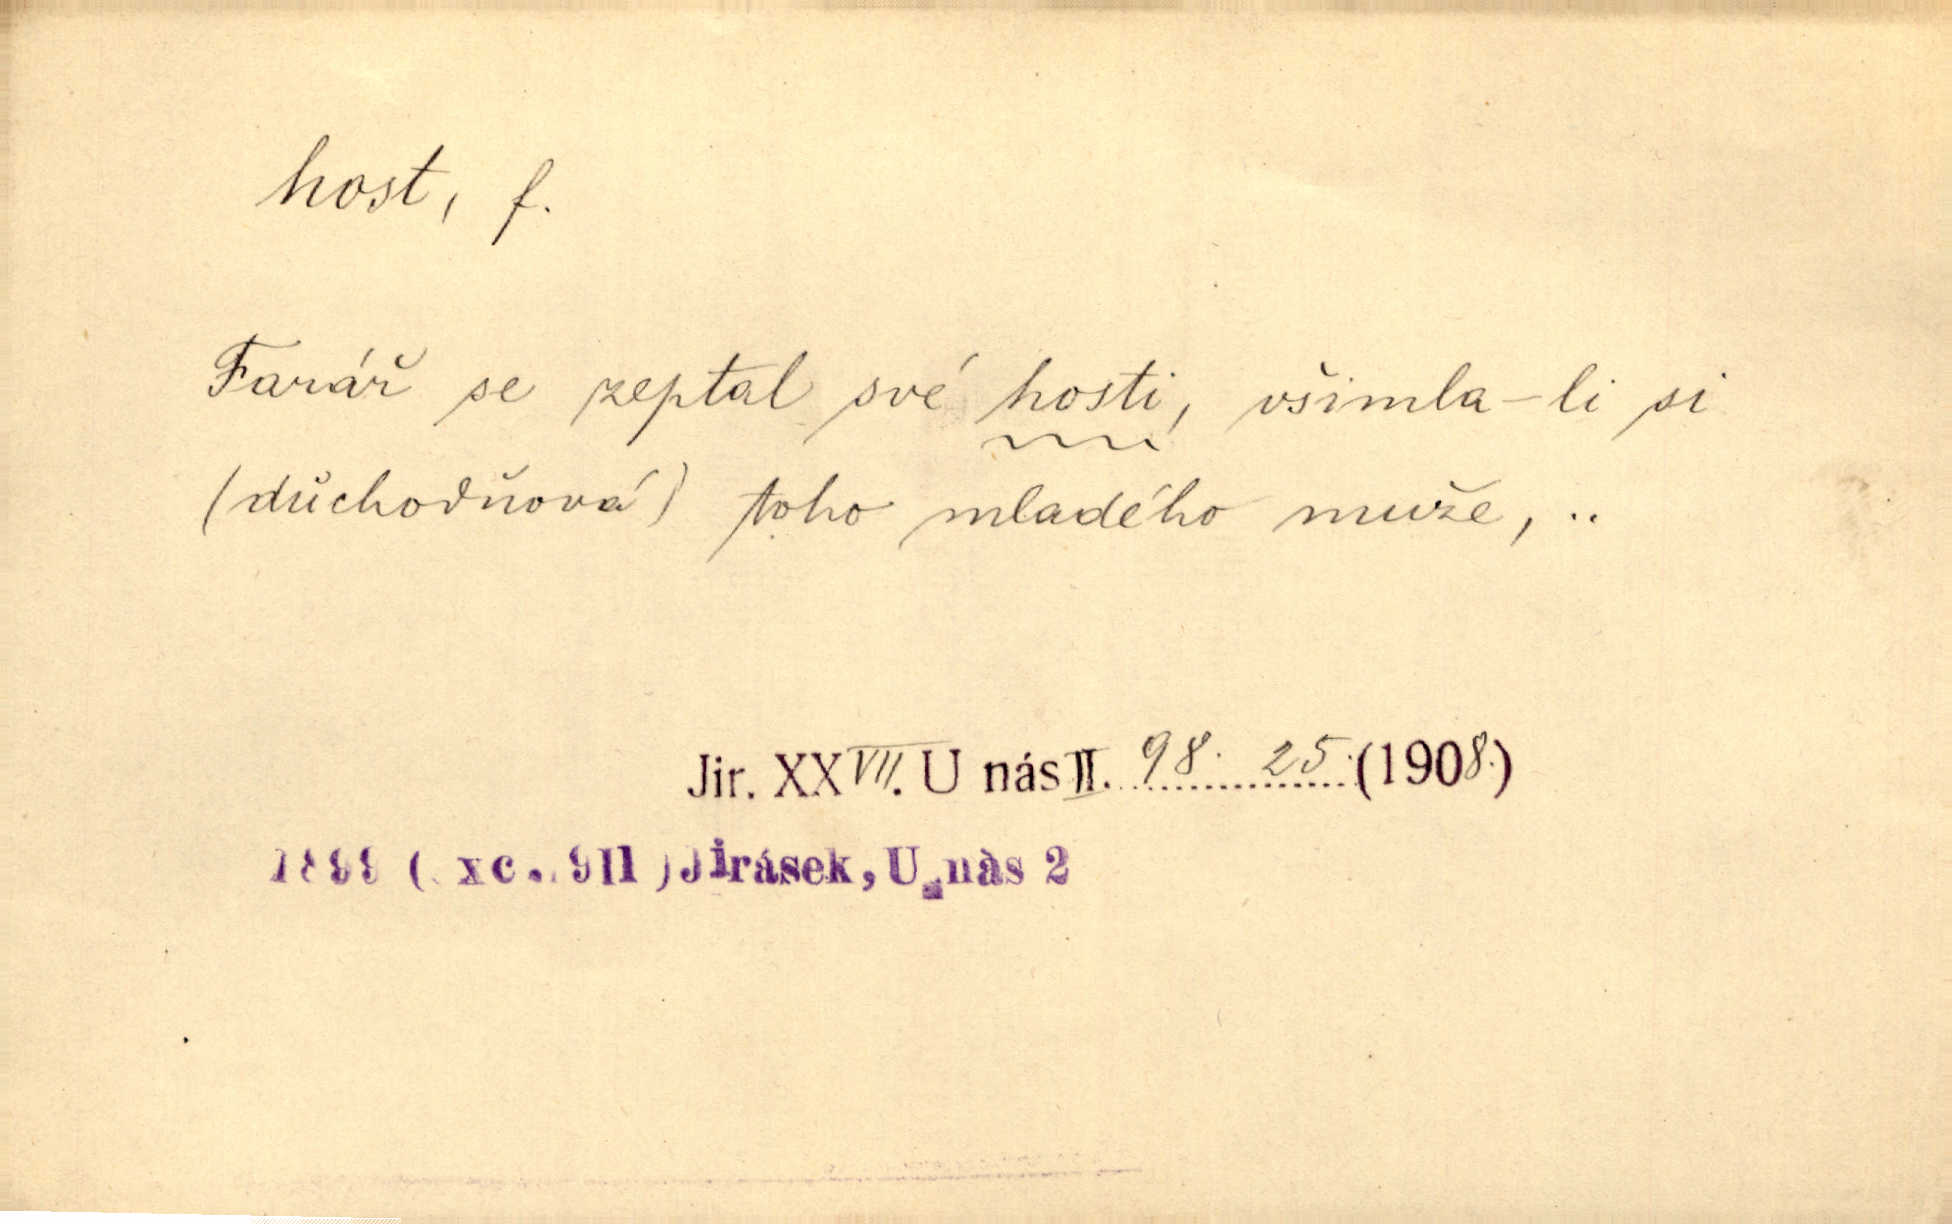 host, f.
Farář se zeptal své hosti, všimla-li si
(důchodňová) toho mladého muže, ..
Jir. XXVII. U nás II. 98. 25. (1908.)
1899 ( xc . 911 ) Jirásek, U nàs 2